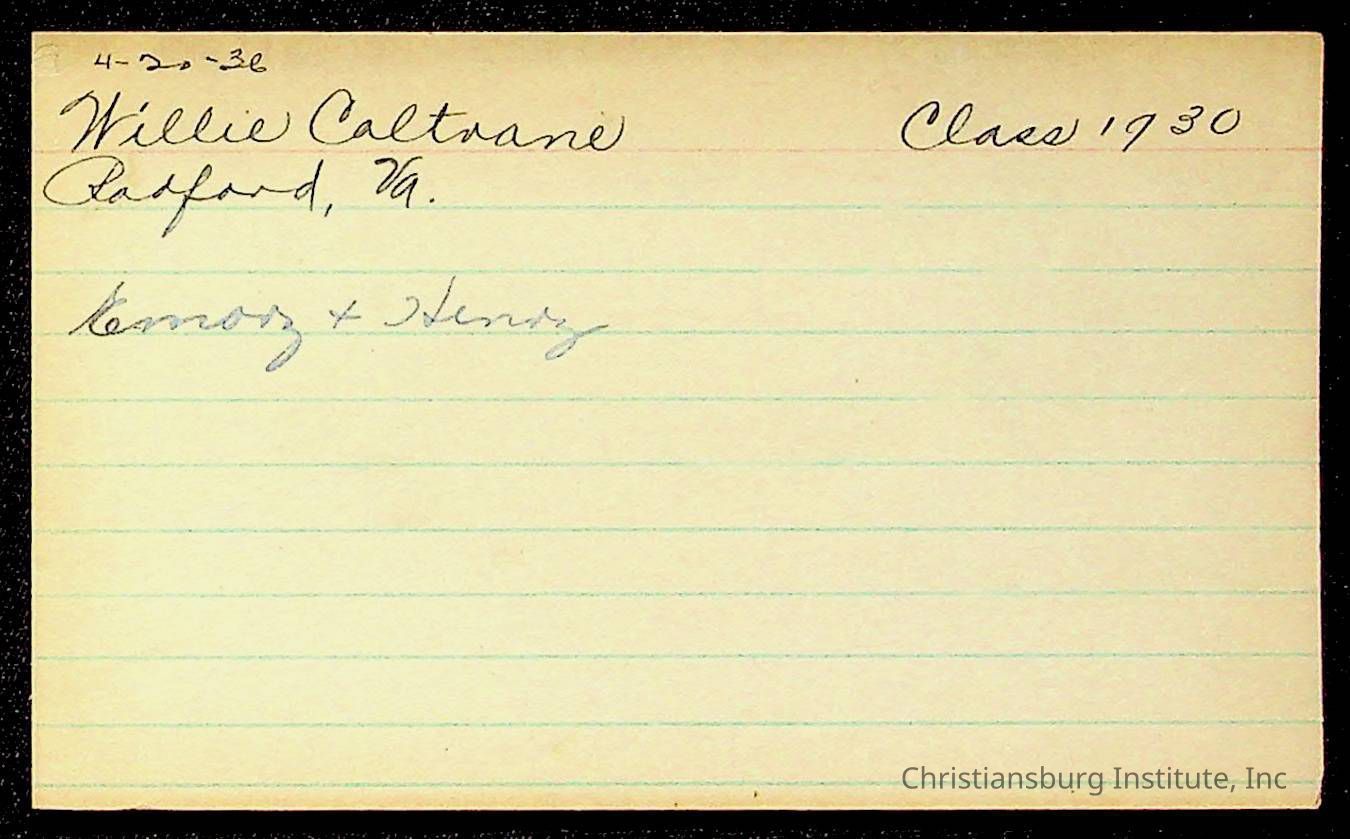 4-20-36
Willie Coltrane Class 1930
Radford, Va.
Emory + Henry
Christiansburg Institute, Inc